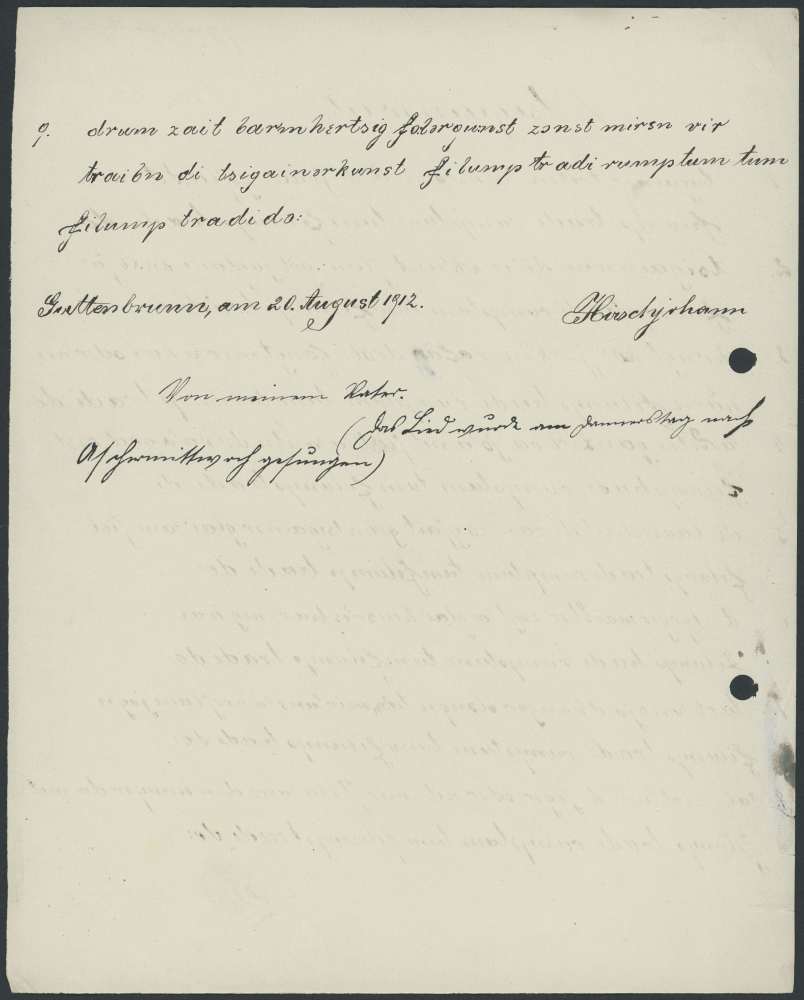 9. drum zait barmhertsig fatərgunst zonst mirsn vir
traibn di tsigainərkunst filump tradi rumptum tum
filump tradi do:
Guttenbrunn, am 20. August 1912. Hirschjohann
Von meinem Vater.
(Das Lied wurde am Donnerstag nach
Aschermittwoch gesungen)